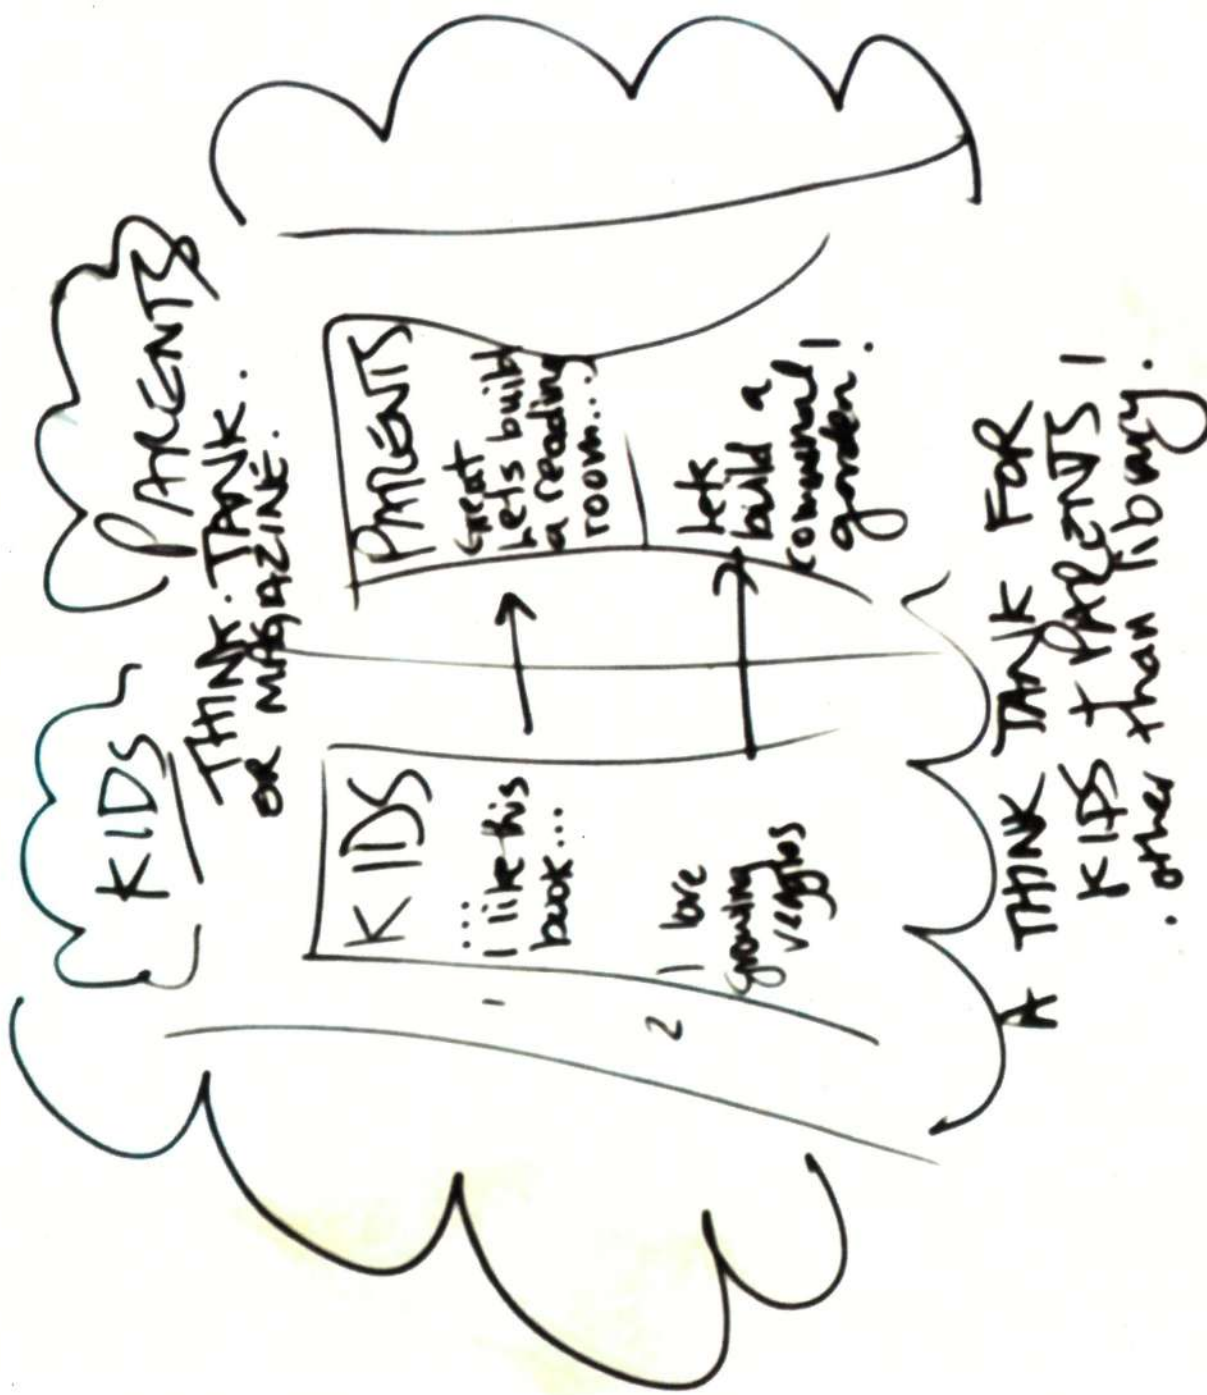 KIDS
PARENTS
THINK. TANK.
OR MAGAZINE.
KIDS
1 ... I like this
book....
2 I love
growing
veggies
PARENTS
Great
Lets build
a reading
room....
Lets
build a
communal
garden!
A THINK TANK FOR
KIDS + PARENTS!
. other than library.